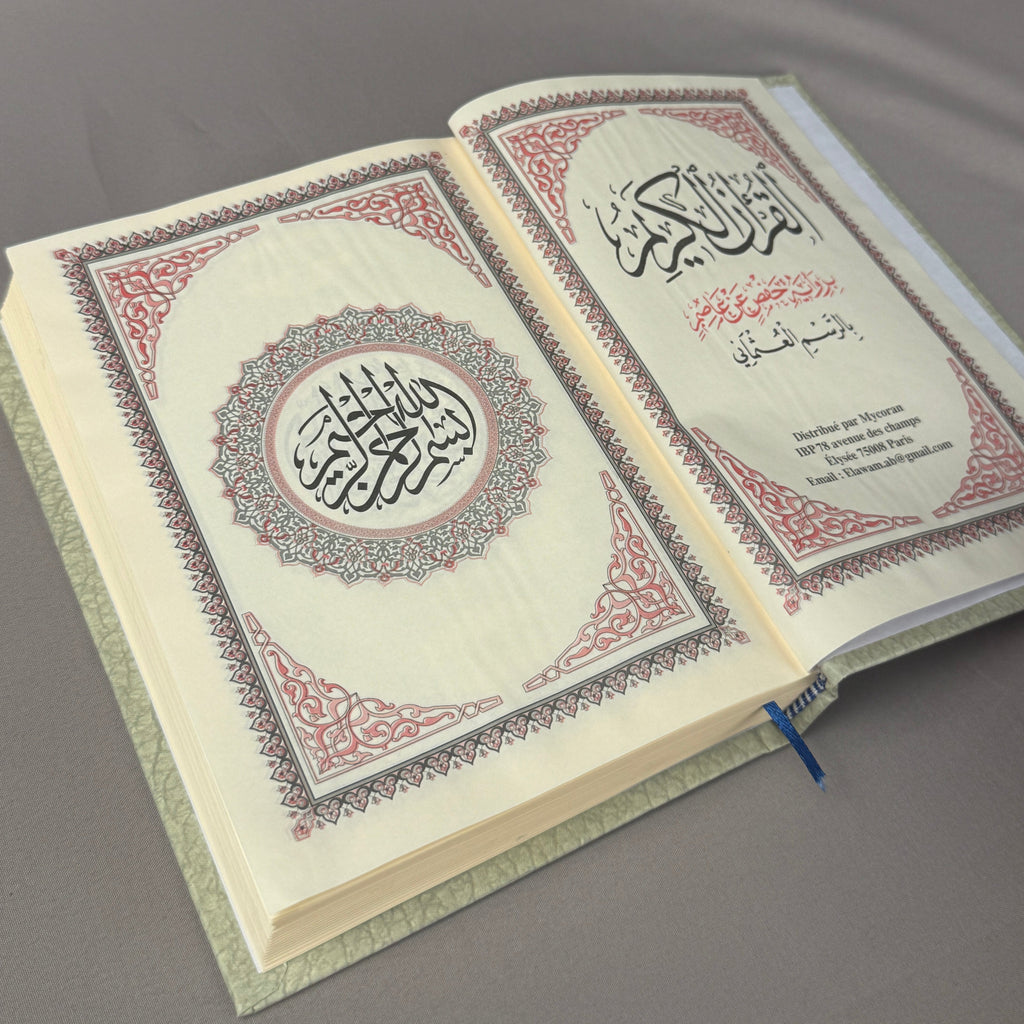 القرءان الكريم
برواية حفص عن عاصم
بالرسم العثماني
Distribué par Mycoran
IBP 78 avenue des champs
Élysée 75008 Paris
Email : Elawam.ab@gmail.com
بسم الله الرحمن الرحيم